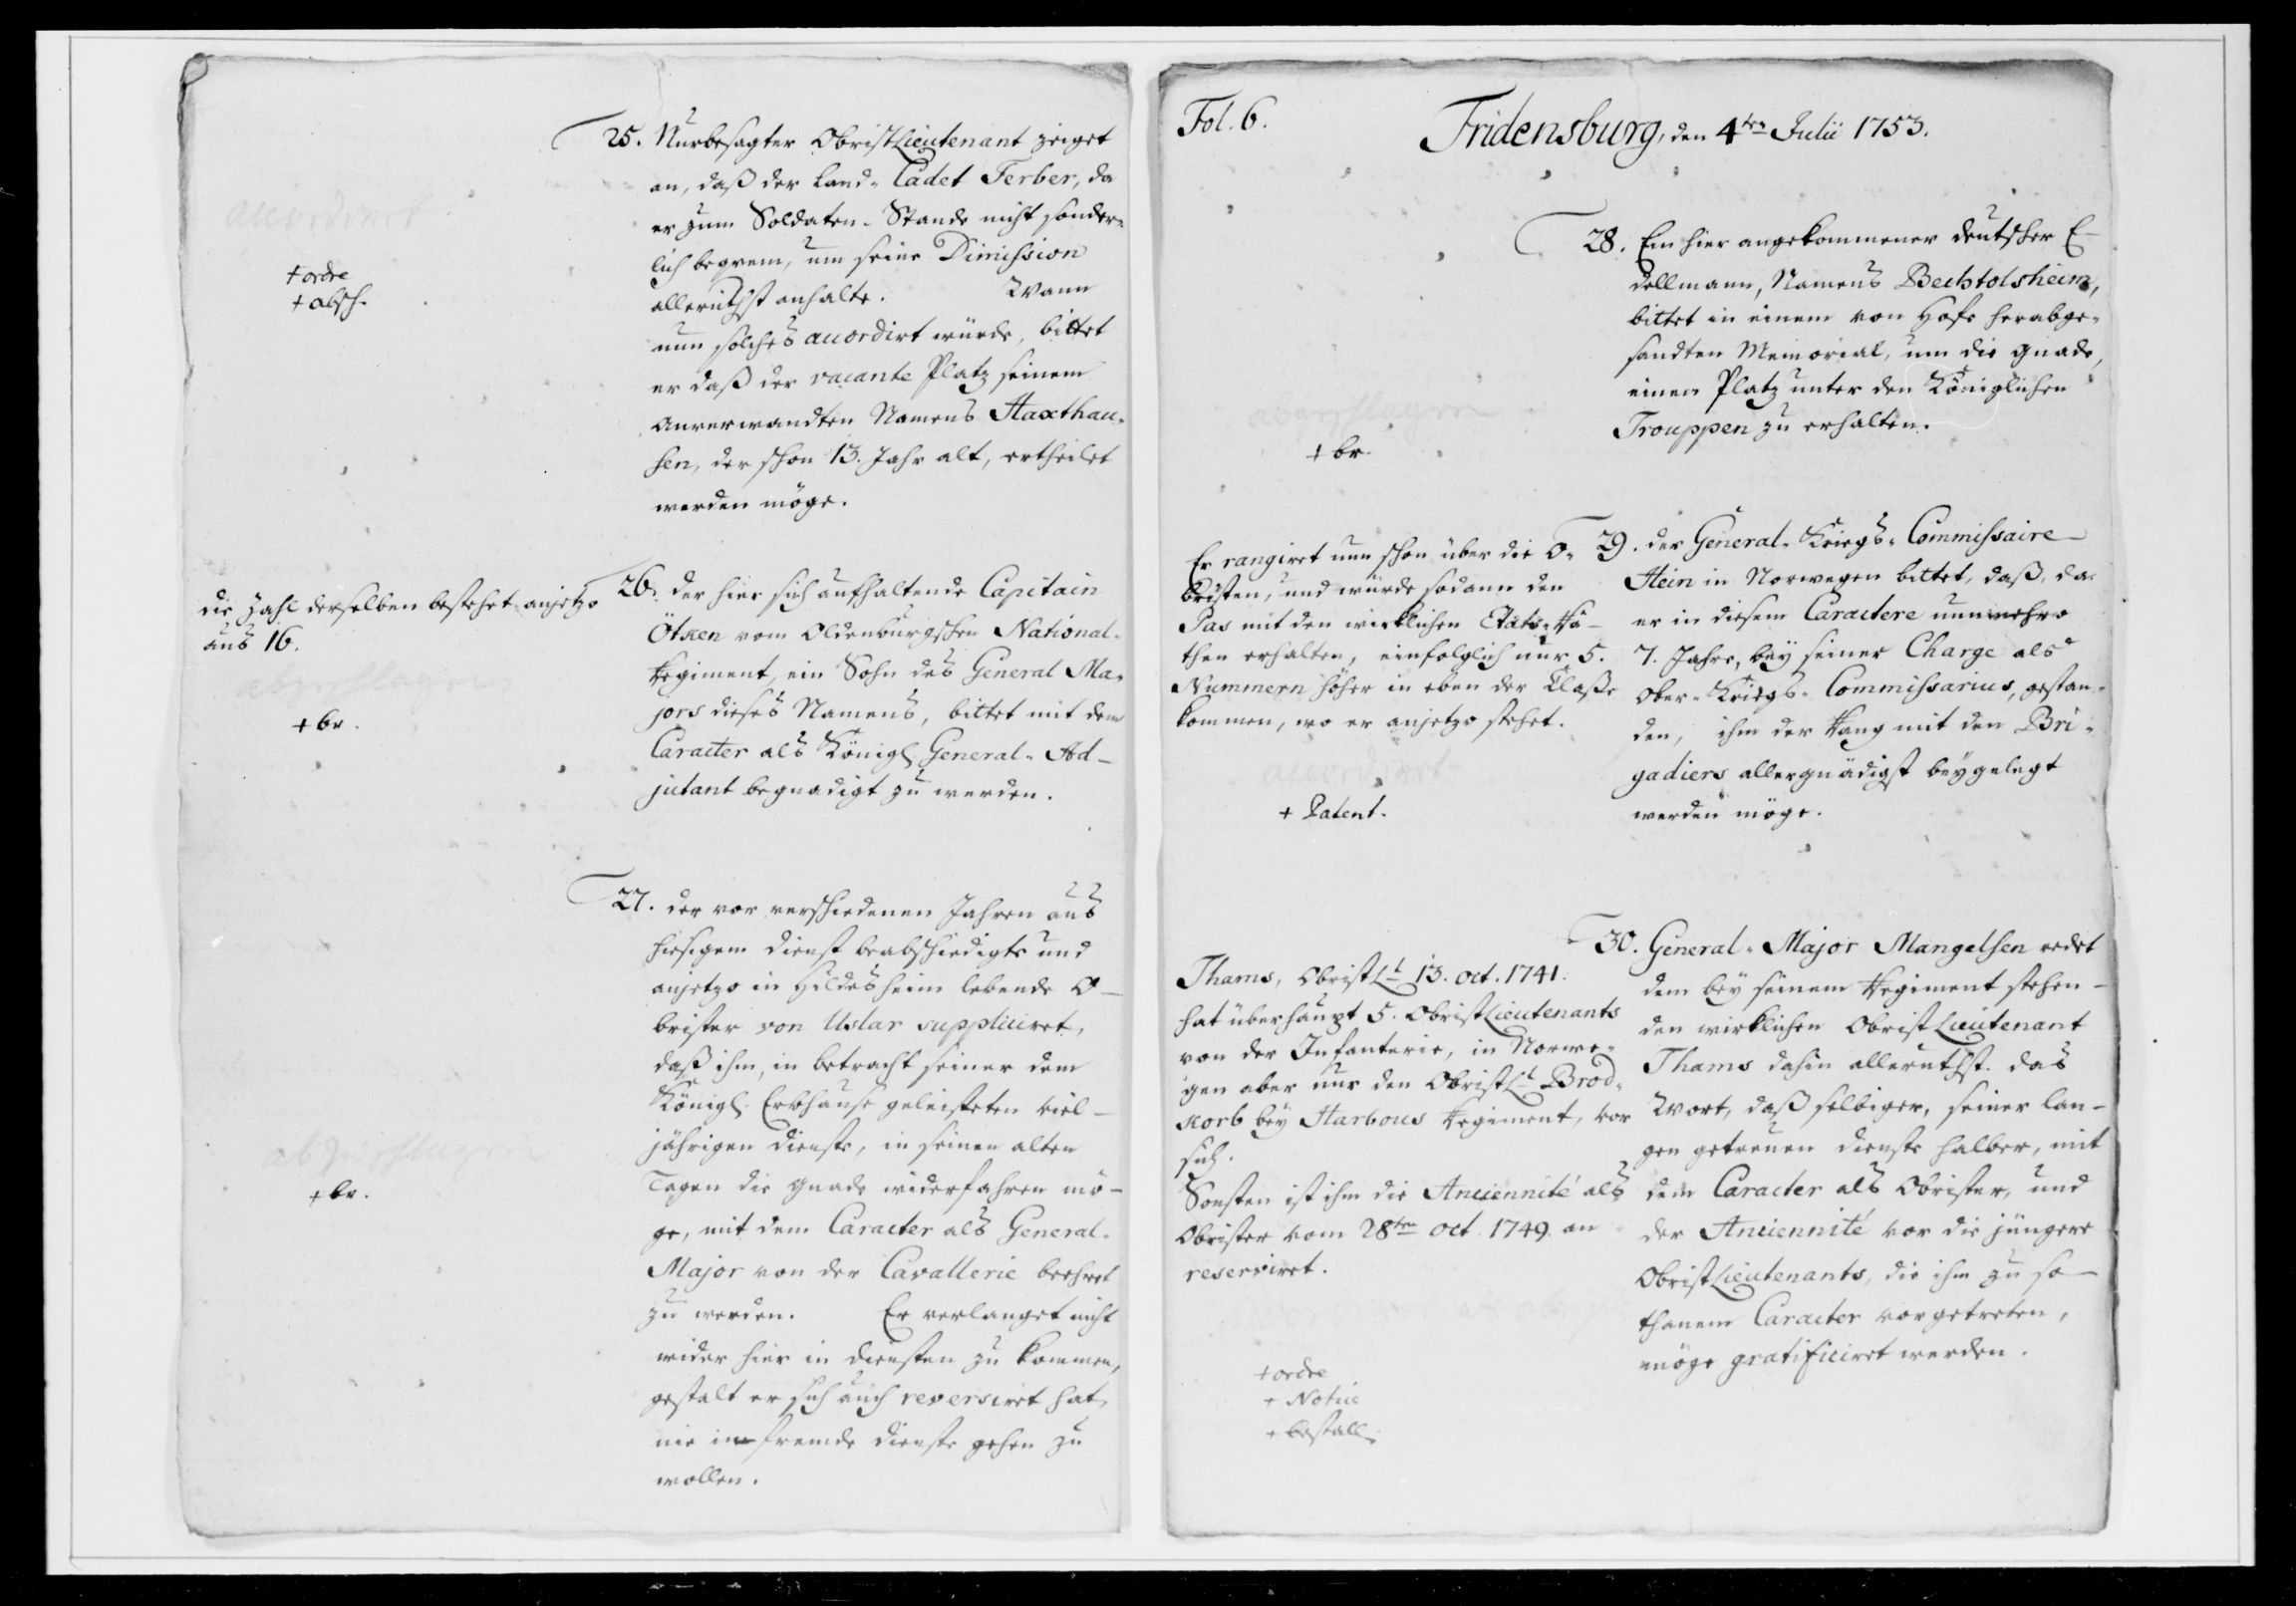 25. Nurbesagter ObristLieutenant zeiget
an, daß der Land-Cadet Ferber, da
er zum Soldaten-Stande nicht sonder-
lich beqvem, um seine Dimission
allerunthst anhalte. Wann
nun solches accordirt würde, bittet
er daß der vacante Platz seinem
Anverwandten Namens Haxthau-
sen, der schon 13. Jahr alt, ertheilet
werden möge.
accordiret
+ ordre
+ absch.
26. Der hier sich aufhaltende Capitain
Ötken vom Oldenburgschen National-
Regiment, ein Sohn des General Ma-
jors dieses Namens, bittet mit dem
Caracter als Königl. General-Ad-
jutant begnadigt zu werden.
die Zahl derselben bestehet anjetzo
aus 16.
abgeschlagen
+ br.
27. Der vor verschiedenen Jahren aus
hiesigem Dienst beabschiedigte und
anjetzo in Hildesheim lebende O-
brister von Uslar suppliciret,
daß ihm, in betracht seiner dem
Königl. Erbhause geleisteten viel-
jährigen Dienste, in seinen alten
Tagen die Gnade widerfahren mö-
ge, mit dem Caracter als General-
Major von der Cavallerie beehret
zu werden. Er verlanget nicht
wider hier in Diensten zu kommen,
gestalt er sich auch reversiret hat,
nie in fremde Dienste gehen zu
wollen.
abgeschlagen
+ br.
Fol. 6.
Fridensburg, den 4ten Julii 1753.
28. Ein hier angekommener deutscher E-
dellmann, Namens Bechtolsheim,
bittet in einem von Hofe herabge-
sandten Memorial, um die Gnade,
einen Platz unter den Königlichen
Trouppen zu erhalten.
abgeschlagen
+ br.
29. Der General-Kriegs-Commissaire
Hein in Norwegen bittet, daß, da
er in diesem Caractere nunmehro
7. Jahre, bey seiner Charge als
Ober-Kriegs-Commissarius, gestan-
den, ihm der Rang mit den Bri-
gadiers allergnädigst beygelegt
werden möge.
Er rangiret nun schon über die O-
bristen, und würde sodann den
Pas mit den wirklichen Etats-Rä-
then erhalten, einfolglich nur 5.
Nummern höher in eben der Claße
kommen, wo er anjetzo stehet.
accordiret
+ Patent.
30. General-Major Mangelsen redet
dem bey seinem Regiment stehen-
den wirklichen ObristLieutenant
Thams dahin allerunthst. das
Wort, daß selbiger, seiner lan-
gen getreuen Dienste halber, mit
dem Caracter als Obrister, und
der Anciennité vor die jüngere
ObristLieutenants, die ihm zu so-
thanem Caracter vorgetreten,
möge gratificiret werden.
Thams, ObristLt 13. Oct. 1741.
hat überhaupt 5. ObristLieutenants
von der Infanterie, in Norwe-
gen aber nur den ObristLt Brod-
korb bey Harbous Regiment, vor
sich.
Sonsten ist ihm die Anciennité als
Obrister vom 28ten Oct. 1749. an
reserviret.
+ ordre
+ Notice
+ bestall.